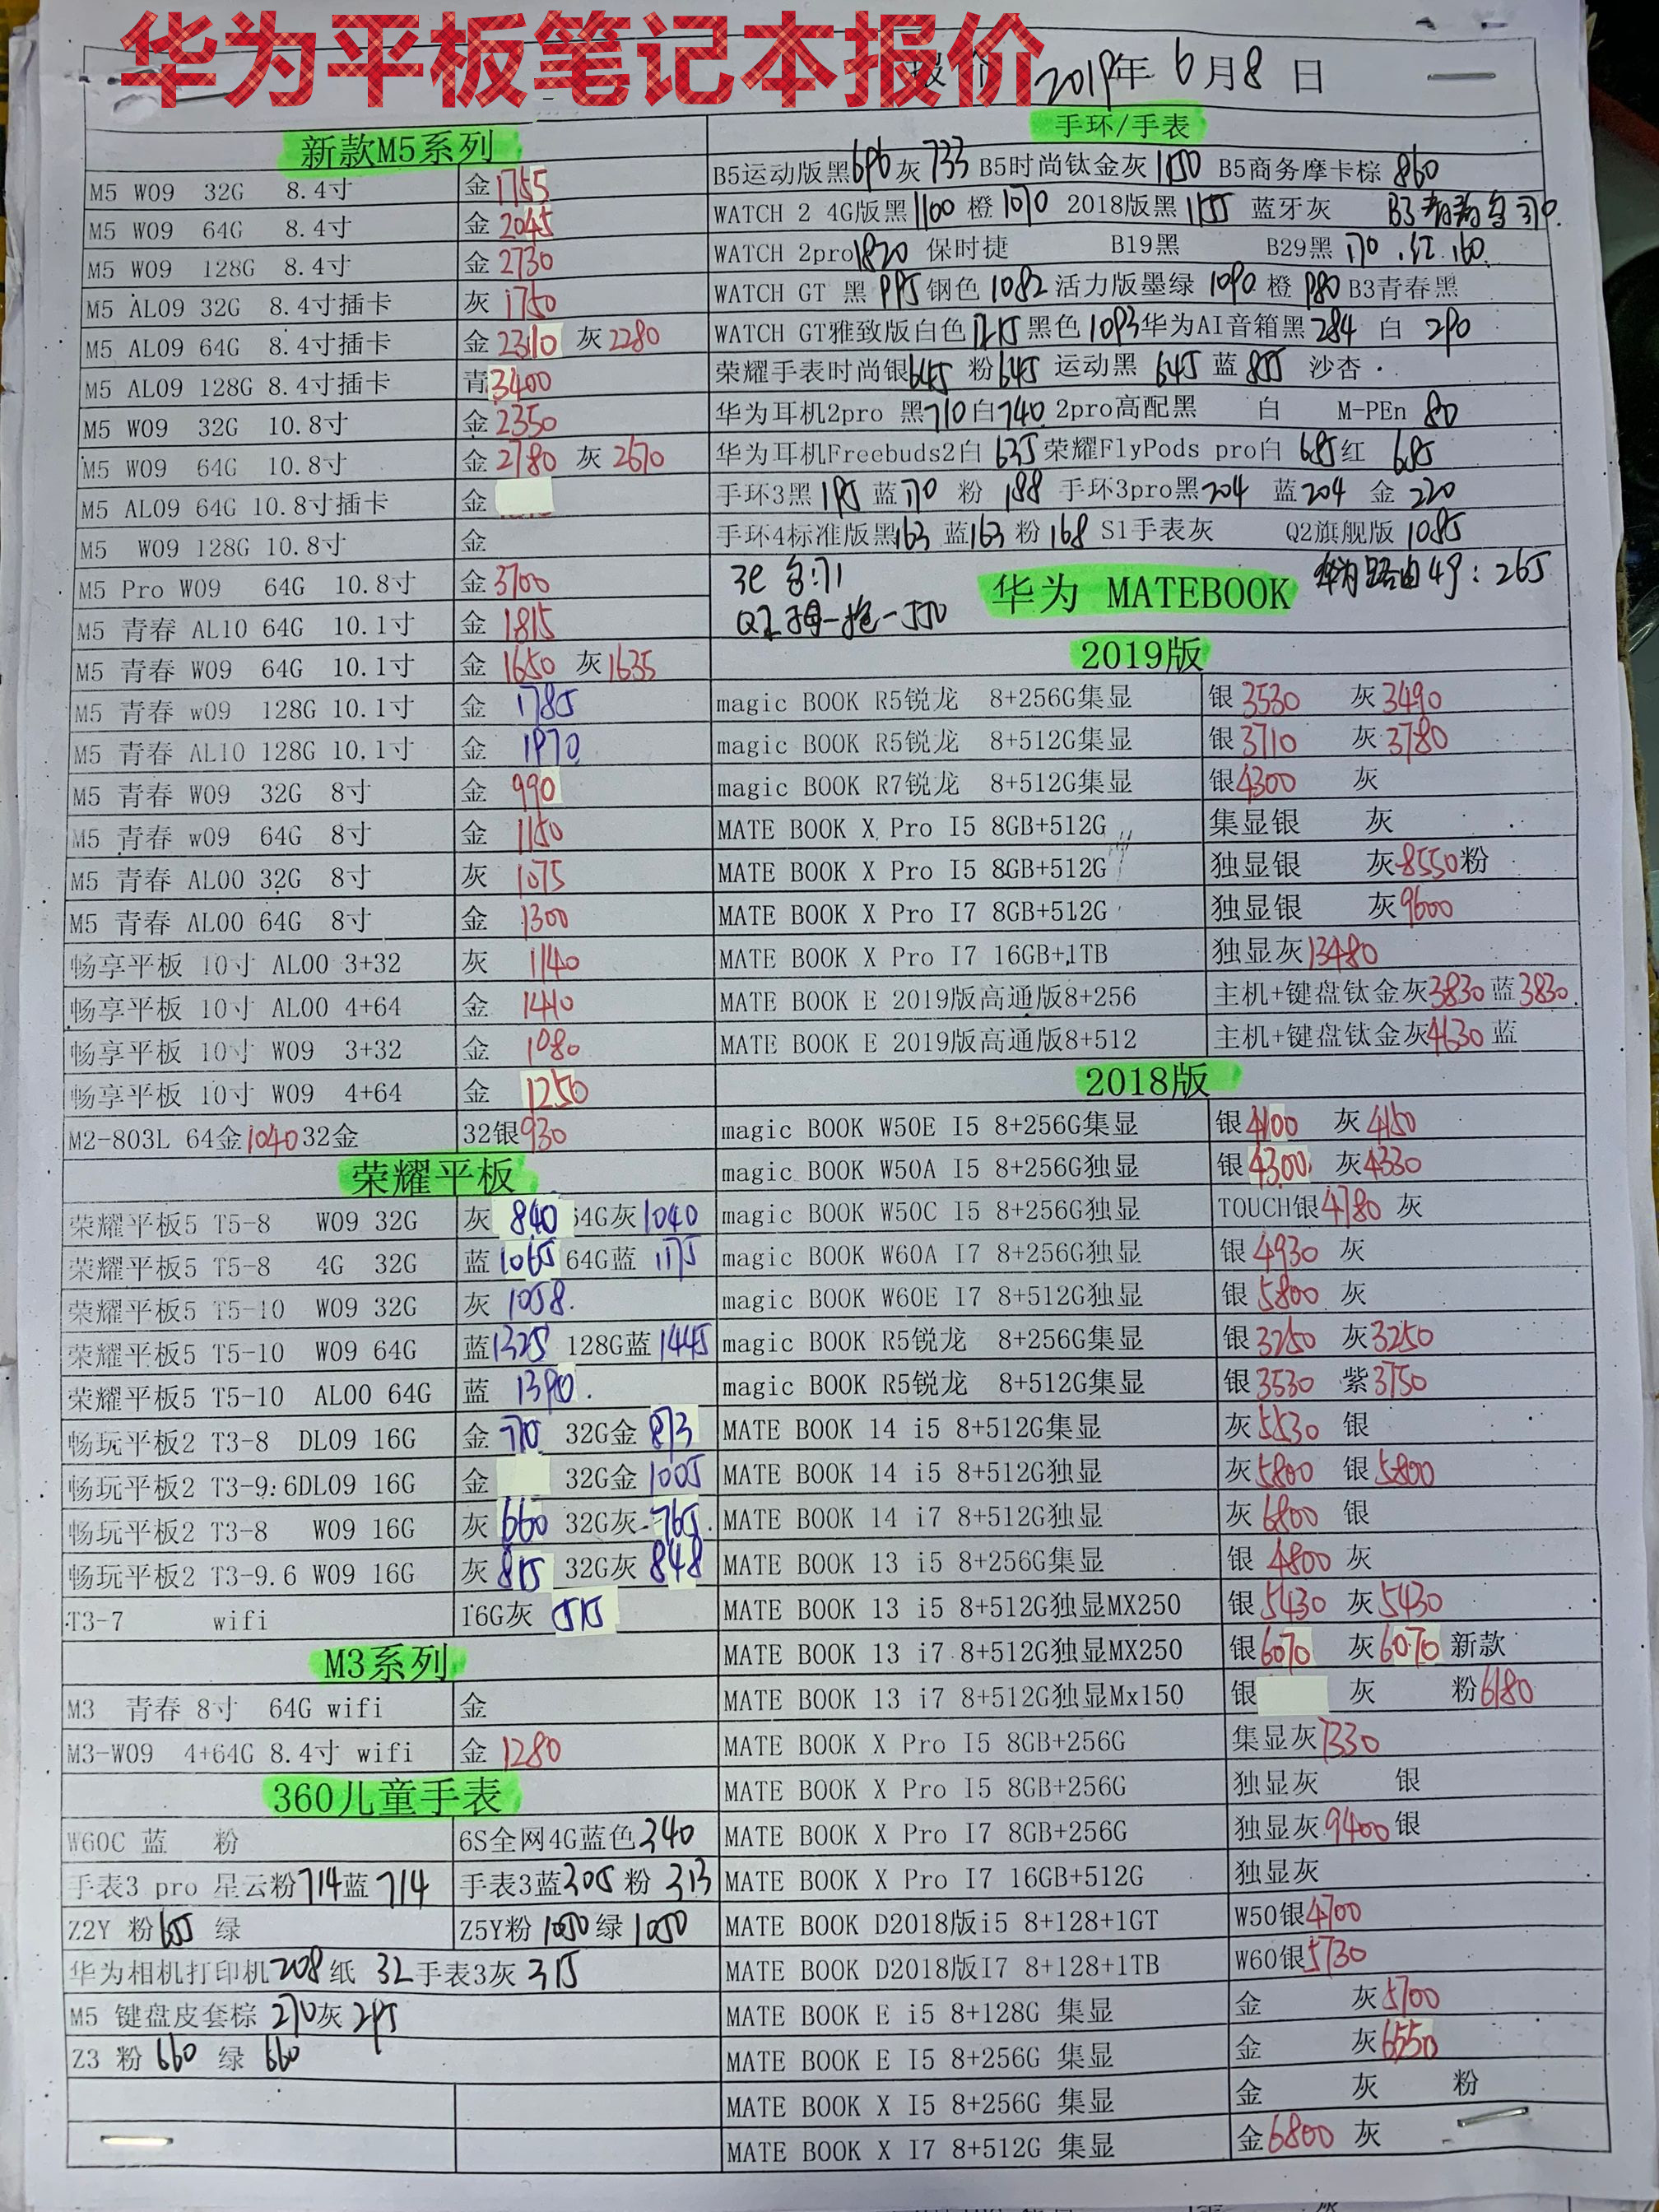 华为平板笔记本报价
报价 2019年 6月8日
新款M5系列
M5 W09 32G 8.4寸 金1755
M5 W09 64G 8.4寸 金2045
M5 W09 128G 8.4寸 金2730
M5 AL09 32G 8.4寸插卡 灰1750
M5 AL09 64G 8.4寸插卡 金2310 灰2280
M5 AL09 128G 8.4寸插卡 青3400
M5 W09 32G 10.8寸 金2350
M5 W09 64G 10.8寸 金2780 灰2670
M5 AL09 64G 10.8寸插卡 金
M5 W09 128G 10.8寸 金
M5 Pro W09 64G 10.8寸 金3700
M5 青春 AL10 64G 10.1寸 金1815
M5 青春 W09 64G 10.1寸 金1650 灰1635
M5 青春 w09 128G 10.1寸 金1785
M5 青春 AL10 128G 10.1寸 金1970
M5 青春 W09 32G 8寸 金990
M5 青春 w09 64G 8寸 金1150
M5 青春 AL00 32G 8寸 灰1075
M5 青春 AL00 64G 8寸 金1300
畅享平板 10寸 AL00 3+32 灰1140
畅享平板 10寸 AL00 4+64 金1410
畅享平板 10寸 W09 3+32 金1080
畅享平板 10寸 W09 4+64 金1250
M2-803L 64金1040 32金 32银930
荣耀平板
荣耀平板5 T5-8 W09 32G 灰840 64G灰1040
荣耀平板5 T5-8 4G 32G 蓝1065 64G蓝1175
荣耀平板5 T5-10 W09 32G 灰1058.
荣耀平板5 T5-10 W09 64G 蓝1325 128G蓝1445
荣耀平板5 T5-10 AL00 64G 蓝1390.
畅玩平板2 T3-8 DL09 16G 金710 32G金873
畅玩平板2 T3-9.6DL09 16G 金 32G金1005
畅玩平板2 T3-8 W09 16G 灰660 32G灰765.
畅玩平板2 T3-9.6 W09 16G 灰815 32G灰848
T3-7 wifi 16G灰515
M3系列
M3 青春 8寸 64G wifi 金
M3-W09 4+64G 8.4寸 wifi 金1280
360儿童手表
W60C 蓝 粉 6S全网4G蓝色340
手表3 pro 星云粉714蓝714 手表3蓝305粉313
Z2Y 粉655 绿 Z5Y粉1050绿1050
华为相机打印机208纸32手表3灰315
M5 键盘皮套棕270灰295
Z3 粉660 绿660
手环/手表
B5运动版黑696灰733 B5时尚钛金灰1150 B5商务摩卡棕860
WATCH 2 4G版黑1100橙1070 2018版黑1155 蓝牙灰 B3
WATCH 2pro1820 保时捷 B19黑 B29黑170.红160.
WATCH GT 黑995钢色1082活力版墨绿1090橙980 B3青春黑
WATCH GT雅致版白色1215黑色1093华为AI音箱黑284白290
荣耀手表时尚银645粉645运动黑645蓝855沙杏
华为耳机2pro 黑710白740 2pro高配黑 白 M-PEn 80
华为耳机Freebuds2白635荣耀FlyPods pro白685红685
手环3黑195蓝170粉188手环3pro黑204蓝204金220
手环4标准版黑163蓝163粉168 S1手表灰 Q2旗舰版1085
3e 71
华为路由4g:265
华为 MATEBOOK
2019版
magic BOOK R5锐龙 8+256G集显 银3530 灰3490
magic BOOK R5锐龙 8+512G集显 银3710 灰3780
magic BOOK R7锐龙 8+512G集显 银4300 灰
MATE BOOK X Pro I5 8GB+512G 集显银 灰
MATE BOOK X Pro I5 8GB+512G 独显银 灰8550粉
MATE BOOK X Pro I7 8GB+512G 独显银 灰9600
MATE BOOK X Pro I7 16GB+1TB 独显灰13480
MATE BOOK E 2019版高通版8+256 主机+键盘钛金灰3830蓝3830.
MATE BOOK E 2019版高通版8+512 主机+键盘钛金灰4630蓝
2018版
magic BOOK W50E I5 8+256G集显 银4100 灰4150
magic BOOK W50A I5 8+256G独显 银4300 灰4330
magic BOOK W50C I5 8+256G独显 TOUCH银4780 灰
magic BOOK W60A I7 8+256G独显 银4930 灰
magic BOOK W60E I7 8+512G独显 银5800 灰
magic BOOK R5锐龙 8+256G集显 银3250 灰3250
magic BOOK R5锐龙 8+512G集显 银3530 紫3750
MATE BOOK 14 i5 8+512G集显 灰5530 银
MATE BOOK 14 i5 8+512G独显 灰5800 银5800
MATE BOOK 14 i7 8+512G独显 灰6800 银
MATE BOOK 13 i5 8+256G集显 银4800 灰
MATE BOOK 13 i5 8+512G独显MX250 银5430 灰5430
MATE BOOK 13 i7 8+512G独显MX250 银6070 灰6070新款
MATE BOOK 13 i7 8+512G独显Mx150 银 灰 粉6180
MATE BOOK X Pro I5 8GB+256G 集显灰7330
MATE BOOK X Pro I5 8GB+256G 独显灰 银
MATE BOOK X Pro I7 8GB+256G 独显灰9400银
MATE BOOK X Pro I7 16GB+512G 独显灰
MATE BOOK D2018版i5 8+128+1GT W50银4700
MATE BOOK D2018版I7 8+128+1TB W60银5730
MATE BOOK E i5 8+128G 集显 金 灰5700
MATE BOOK E I5 8+256G 集显 金 灰6550
MATE BOOK X I5 8+256G 集显 金 灰 粉
MATE BOOK X I7 8+512G 集显 金6800 灰